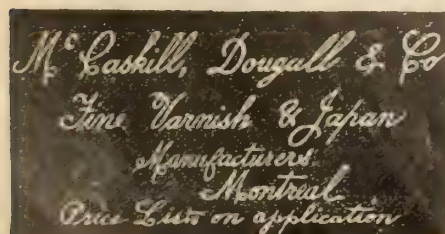 McCaskill, Dougall & Co
Fine Varnish & Japan
Manufacturers
Montreal
Price Lists on application